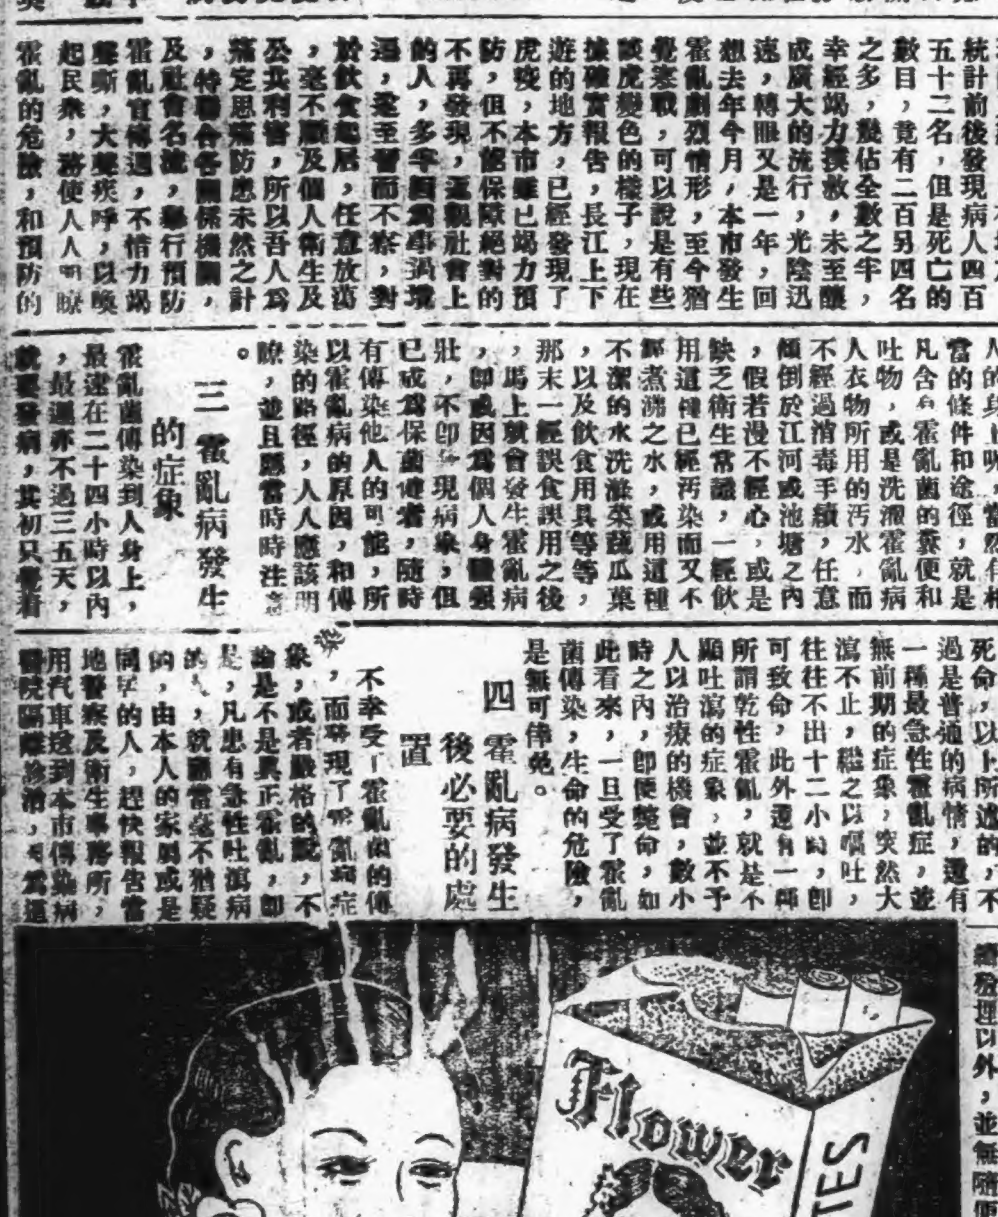 統計前後發現病人四百
五十二名，但是死亡的
數目，竟有二百另四名
之多，幾佔全數之半，
幸經竭力撲救，未至釀
成廣大的流行，光陰迅
速，轉眼又是一年，回
想去年今月，本市發生
霍亂劇烈情形，至今猶
覺寒戰，可以說是有些
談虎變色的樣子，現在
據確實報告，長江上下
遊的地方，已經發現了
虎疫，本市雖已竭力預
防，但不能保障絕對的
不再發現，近觀社會上
的人，多半因為事過境
過，竟至習而不察，對
於飲食起居，任意放蕩
，毫不顧及個人衛生及
公共利害，所以吾人為
痛定思痛防患未然之計
，特聯合各關係機關，
及社會名流，舉行預防
霍亂宣傳週，不惜力竭
聲嘶，大聲疾呼，以喚
起民衆，務使人人明瞭
霍亂的危險，和預防的
當的條件和途徑，就是
凡含有霍亂菌的糞便和
吐物，或是洗濯霍亂病
人衣物所用的汚水，而
不經過消毒手續，任意
傾倒於江河或池塘之內
，假若漫不經心，或是
缺乏衛生常識，一經飲
用這種已經汚染而又不
經煮沸之水，或用這種
不潔的水洗滌菜蔬瓜菓
，以及飲食用具等等，
那末一經誤食誤用之後
，馬上就會發生霍亂病
，卽或因爲個人身體强
壯，不卽發現病象，但
已成爲保菌健者，隨時
有傳染他人的可能，所
以霍亂病的原因，和傳
染的路徑，人人應該明
瞭，並且應當時時注意
。
三　霍亂病發生
的症象
霍亂菌傳染到人身上，
最速在二十四小時以內
，最遲亦不過三五天，
就要發病，其初只覺着
死命，以上所述的，不
過是普通的病情，還有
一種最急性霍亂症，並
無前期的症象，突然大
瀉不止，繼之以嘔吐，
往往不出十二小時，卽
可致命，此外還有一種
所謂乾性霍亂，就是不
顯吐瀉的症象，並不予
人以治療的機會，數小
時之內，卽便斃命，如
此看來，一旦受了霍亂
菌傳染，生命的危險，
是無可倖免。
四　霍亂病發生
後必要的處
置
不幸受了霍亂菌的傳
染，而發現了霍亂病症
象，或者嚴格的說，不
論是不是真正霍亂，卽
是，凡患有急性吐瀉病
的，就應當毫不猶疑
的，由本人的家屬或是
同居的人，趕快報告當
地警察及衛生事務所，
用汽車送到本市傳染病
醫院隔離診治，
發理以外，並無隨便
Flower
TIES